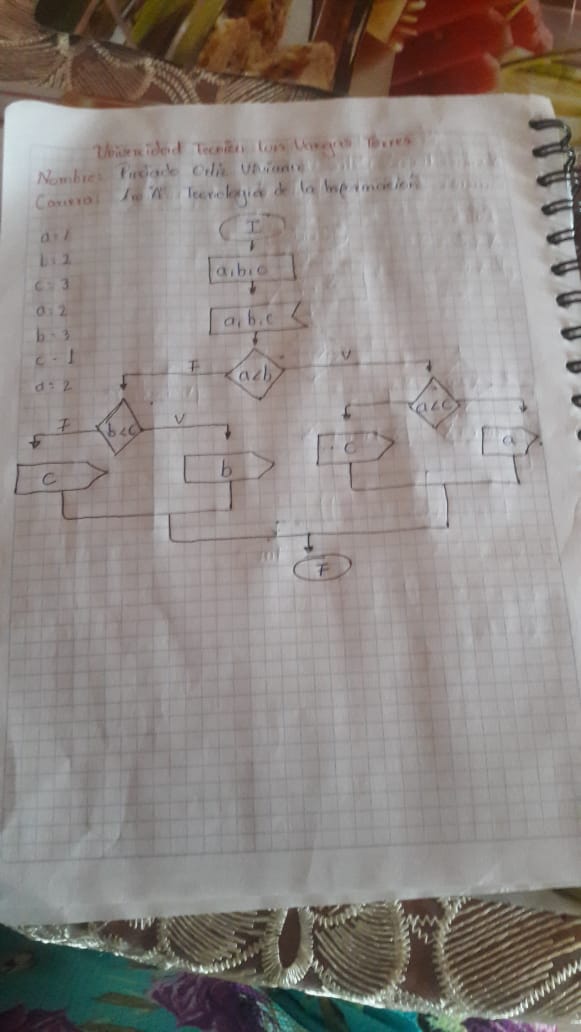 Universidad Tecnica Luis Vargas Torres
Nombre: Preciado Ortiz Viviana
Carrera: 1ro "A" Tecnologia de la Informacion
a = 1
b = 2
c = 3
a = 2
b = 3
c = 1
a = 2
I
a, b, c
a, b, c
a<b
F
V
b<c
F
V
a<c
c
b
c
a
F